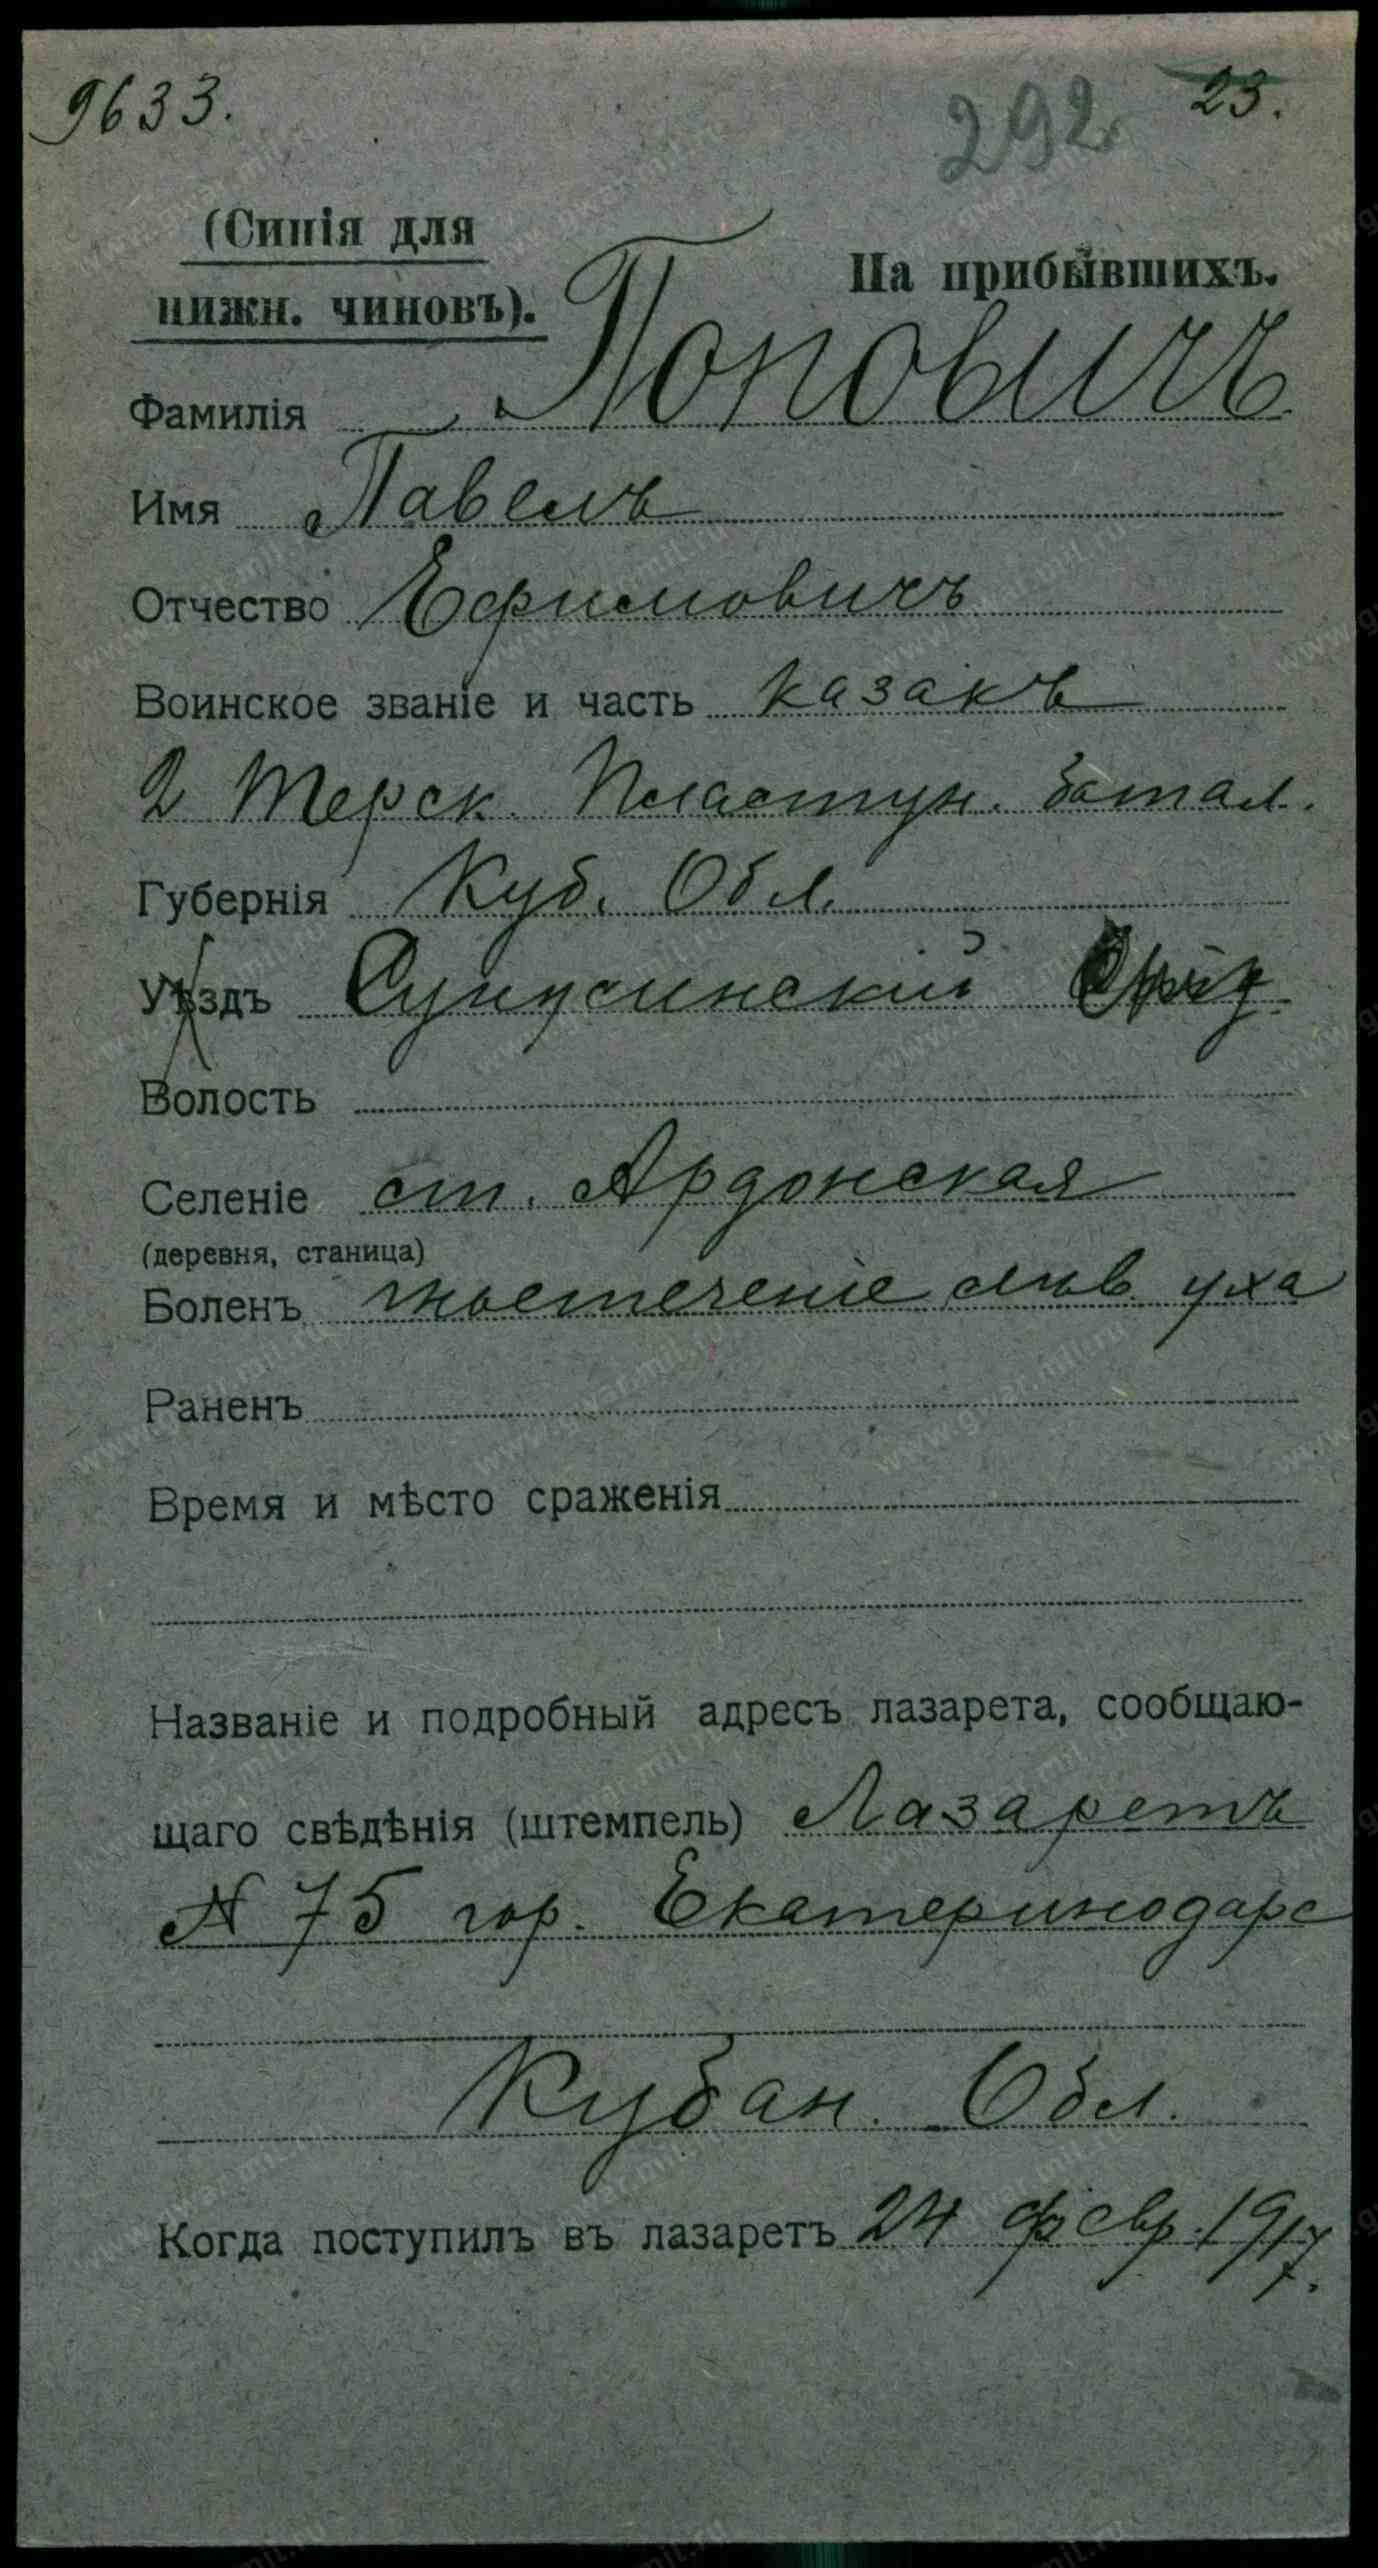 9633.
292.
23.
(Синія для
нижн. чиновъ).
На прибывшихъ.
Фамилія Поповичъ
Имя Павелъ
Отчество Ефимовичъ
Воинское званіе и часть казакъ
2 Терск. Пластун. батал.
Губернія Куб. Обл.
Уѣздъ Сунженскій
Волость
Селеніе ст. Ардонская
(деревня, станица)
Боленъ гноетеченіе лѣв. уха
Раненъ
Время и мѣсто сраженія
Названіе и подробный адресъ лазарета, сообщаю-
щаго свѣдѣнія (штемпель) Лазаретъ
№ 75 гор. Екатеринодаре
Кубан. Обл.
Когда поступилъ въ лазаретъ 24 февр. 1917.